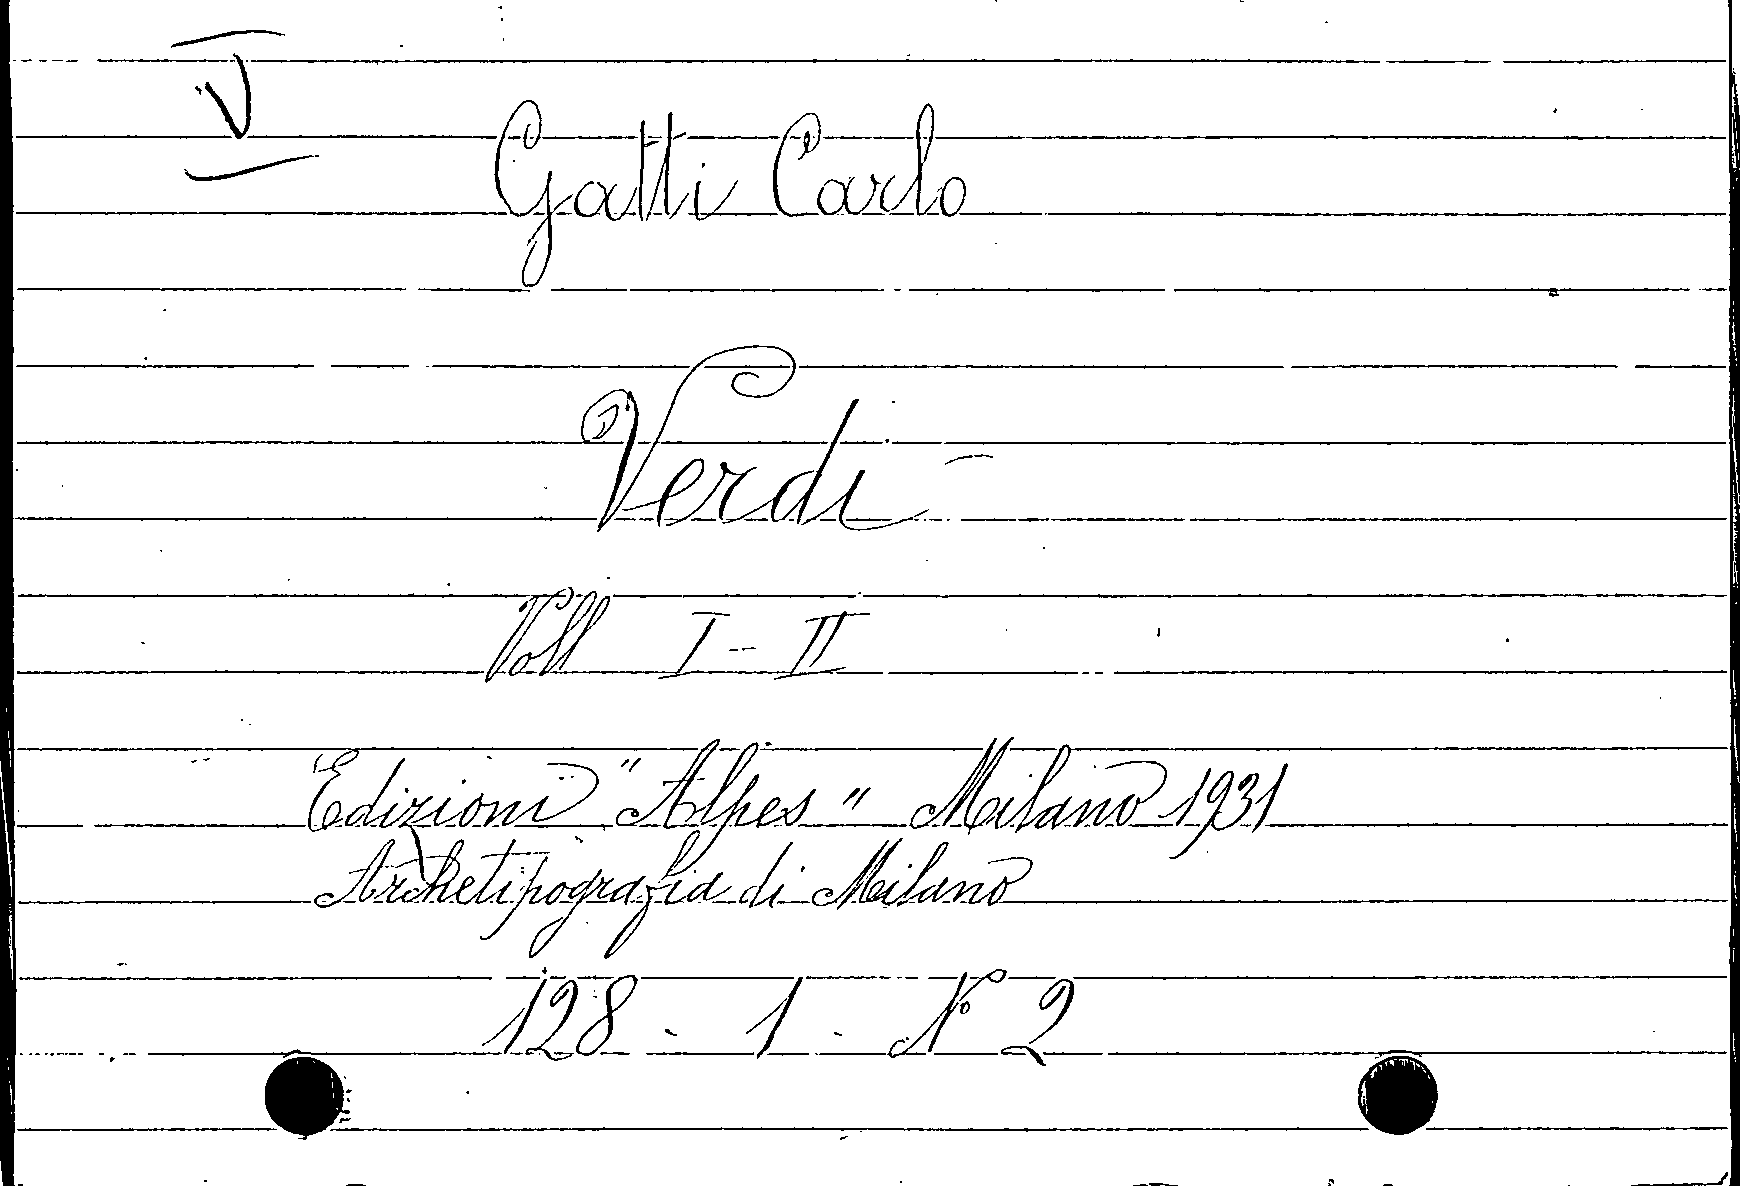 V
Gatti Carlo
Verdi -
Voll I - II
Edizioni "Alpes" Milano 1931
Archetipografia di Milano
128 - 1 - N° 2